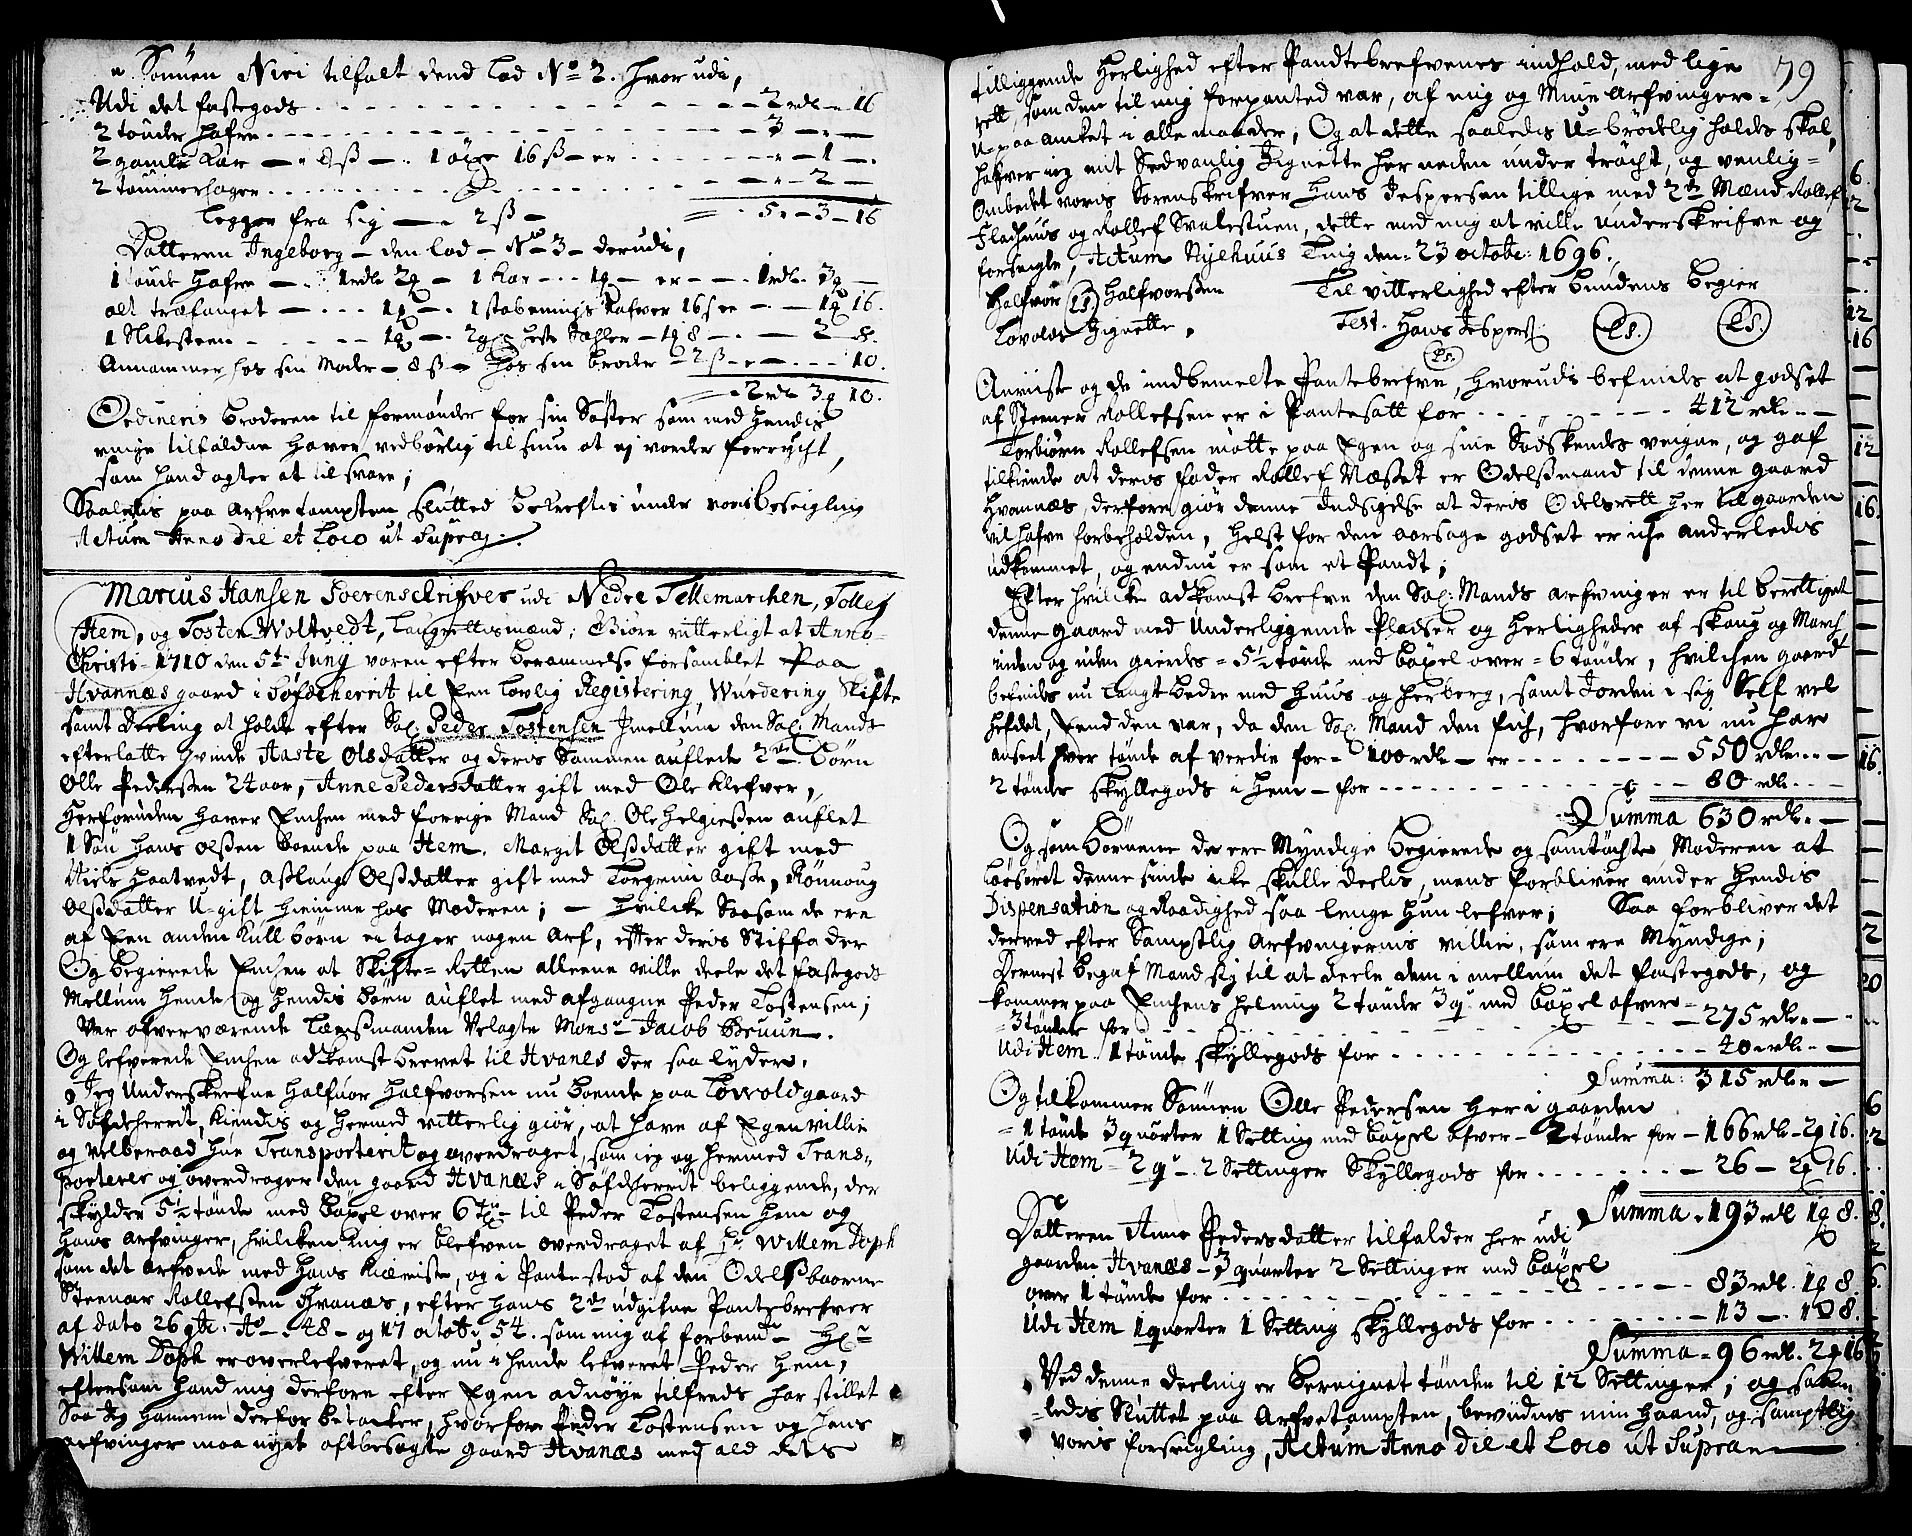 Sönnen Niri tilfalt dend Lod No 2. hvor udi,
Udi det fastegods - - - 2 rdl - 16
2 tönder hafre - - - 3 - " -
2 gamle Kar - " 8 ß - " 1 öxe 16 ß - er - - - " - 1 - "
2 tömmerhager - - - " - 2 -
Legger fra sig - " 2 ß - 5 " - 3 - 16
Datteren Ingeborg - den Lod - No 3 - derudi,
1 tönde hafre - " 1 rdl 2 q - 1 Kar - - - 1 q - er - - - 1 rdl. 3 q -
alt træfanget - - - - 1 q - " 1 16 ß er - - 1 q 16.
1 Slibesteen - - - 1 q - " 2 Sahler - 1 q 8 - " - 2 - 8.
Annammer hos sin Moder - 8 ß - hos sin broder - 2 ß - " - - - 10.
2 rdl 3 q 10.
Ordineris broderen til formönder for sin Söster som med hendis
ringe tilfaldne haver vedbörlig tilsiun at ej vorder forrycht,
som hand agter at til svare;
Saaledis paa Arfvetompten Slutted bekreftis under voris beseigling
Actum Anno die et Loco ut Supra.
Marcus Hansen Soerenschrifver udi Nedre Tellemarchen, Tollef
Hem, og Tosten Woltvedt, Laugrettismænd; Giöre vitterligt at Anno
Christi - 1710 den 5te Juny varen efter berammelse forsamblet Paa
Hvannæs gaard i Söfdeherrit til Een Lovlig Registering, Wurdering, Skifte
samt Deeling at holde efter Sal. Peder Tostensen Imellum den Sal. Mands
efterlatte Qvinde Aaste Olsdatter og deris Sammen auflede 2de Börn
Olle Pederßen 24 aar, Anne Pedersdatter gift med Ole Klefver,
Herforuden haver Enchen med forrige Mand Sal. Ole Helgießen auflet
1 Sön Hans Olßen boende paa Hem. Margit Olßdatter gift med
Niels Haatvedt, Aßlaug Olßdatter gift med Torgrim Aaße, Rönnoug
Olßdatter U-gift hiemme hos Moderen; - Hvilcke Saasom de ere
af Een anden Kull börn ei tager nogen Arf, efter deris Stiffader
Og begierede Enchen at Skifte-Retten alleene ville deele det fastegods
Mellum hende og hendis börn auflet med afgangne Peder Tostensen;
Var ofverværende Lænßmanden Velagte Monsr Jacob Bruun.
Og lefverede Enchen adkomst brevet til Hvanes der saa lyder.
Jeg Underskrefne Halfuor Halfvorsen nu boende paa Lowoldgaard
i Söfdeherrit, Kiendis og hermed vitterlig giör, at have af Egen villie
og velberaad hue Transporterit og overdraget, som ieg og hermed Trans-
porterer og overdrager den gaard Hvanæs i Söfdherrit beliggende, der
skylder 5½ tönde med böxel over 6 tr til Peder Tostensen Hem og
hans Arfvinger, hvilcken mig er blefven overdraget af Hr Willem
som det arfvede med hans Kiæriste, og i Pante stad af den Odelsbaarne
Steenar Rollefßen Hvanæs, efter hans 2de udgifne Pantebrefver
af dato 26 : Ao - 48 - og 17 octob: 54. som mig af forbemte Hr
Willem er overlefveret, og nu i hende lefveret Peder Hem,
eftersom hand mig derfore efter Egen adnöye tilfreds har stillet
Saa Jeg hannem derfor betacker, hvorfore Peder Tostensen og hans
arfvinger maa nyde oftbesagte gaard Hvanæs med ald dets
79
tilliggende Herlighed efter Pandtebrefvenes indhold, med lige
rett, som den til mig forpanted var, af mig og Mine Arfvinger
U-paa ancket i alle maader, Og at dette saaledis U-brödelig holdes skal,
hafver ieg mit Sedvanlig Signette her neden under trÿcht, og venlig
Ombedet voris Sorenskrifver Hans Jespersen tillige med 2de Mænd Rollef
Fladhuus og Rollef Svalestuen, dette med mig at ville underskrifve og
forseigle, Actum Nyehuus Ting den 23 octobr: 1696.
Halfvor (LS) Halfvorßen Til vitterlighed efter bundens begier
Lovolds Signette. Test. Hans Jespers: (LS.) (LS.)
(LS.)
Anviiste og de indbemelte Pantebrefve, hvorudi befindis at godset
af Steener Rollefsen er i Pantesatt for - - - 412 rdl - -
Torbiörn Rollefsen mötte paa Egen og sine Södskendes veigne, og gaf
tilkiende at deris fader Rollef Næßet er Odelßmand til denne gaard
Hvannæs, derfore giör denne Indsigelse at deris Odelsrett her til gaarden
vil hafve forbeholden, helst for den aarsage godset er iche anderledis
udkommet, og endnu er som et Pandt;
Efter hvilcke adkomst brefve den Sal: Mands arfvinger er til berettiget
denne gaard med Underliggende Pladser og herligheder af skoug og March
inden og uden gierdes - 5½ tönde med böxel over - 6 tönder, hvilchen gaard
befindis nu langt bedre med huus og herberg, samt Jorden i sig Self vel
hefdet, End den var, da den Sal. Mand den fich, hvorfore vi nu har
anseet hver tönde af verdie for - 100 rdl - er - - - 550 rdl - - -
2 tönder skyllegods i Hem - for - - - 80 rdl - - -
Summa 630 rdl. -
Og som börnene der ere Myndige begierede og samtöchte Moderen at
Löeseret denne sinde icke skulle deelis, mens forbliver under hendis
Dispensation og Raadighed saa lenge hun lefver; Saa forbliver det
derved efter Samptlig Arfvingernis villie, som ere Myndige;
Dernest begaf Mand sig til at deele dem i mellum det fastegods, og
kommer paa Enchens helming 2 tönder 3 qr med böxel ofver
3 tönder for - - - 275 rdl - -
Udi Hem 1 tönde skyllegods for - - - 40 rdl - -
Summa: 315 rdl - -
Og tilkommer Sönnen Olle Pedersen her i gaarden
1 tönde 3 quarter 1 Setting med böxel ofver - 2 tönder for - 166 rdl - 2 q 16.
Udi Hem - 2 qr - 2 Settinger Skyllegods for - - - 26 - 2 q 16.
Summa - 193 rdl 1 q 8.
Datteren Anne Pedersdatter tilfalder her udi
gaarden Hvanæs - 3 quarter 2 Settinger med böxel
over 1 tönde for - - - 83 rdl. 1 q 8.
Udi Hem 1 quarter 1 Setting skyllegods for - - - 13 - 1 q 8.
Summa - 96 rdl. 2 q 16
Ved denne deeling er beregnet tönden til 12 Settinger; og saa-
ledis Sluttet paa Arfvetompten, bevidnes min haand, og samptlig
voris forseigling, Actum Anno die et Loco ut Supra